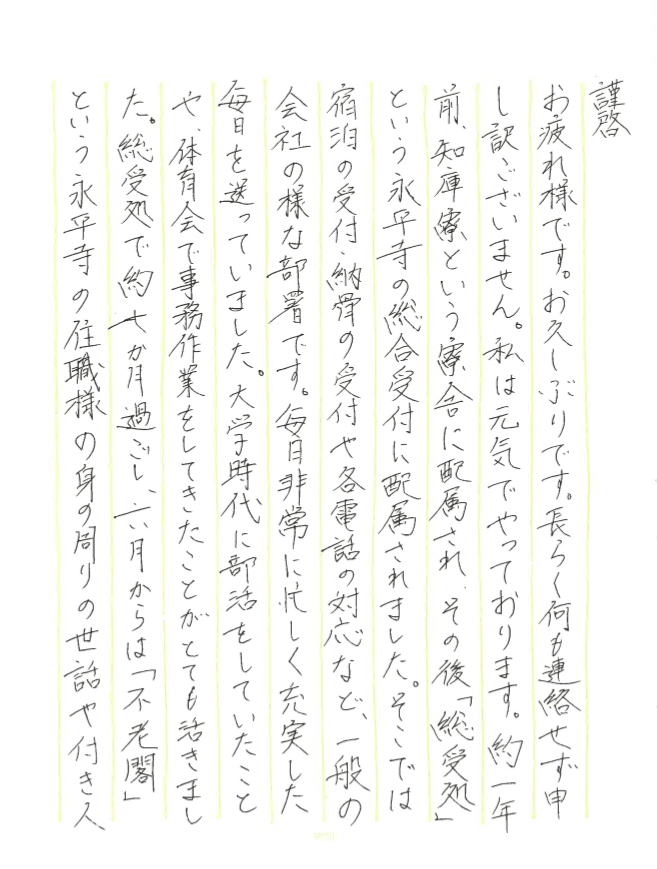 謹啓
お疲れ様です。お久しぶりです。長らく何も連絡せず申
し訳ございません。私は元気でやっております。約一年
前、知庫寮という寮舎に配属され、その後「総受処」
という永平寺の総合受付に配属されました。そこでは
宿泊の受付・納骨の受付や各電話の対応など、一般の
会社の様な部署です。毎日非常に忙しく充実した
毎日を送っていました。大学時代に部活をしていたこと
や、体育会で事務作業をしてきたことがとても活きまし
た。総受処で約七か月過ごし、六月からは「不老閣」
という永平寺の住職様の身の周りの世話や付き人